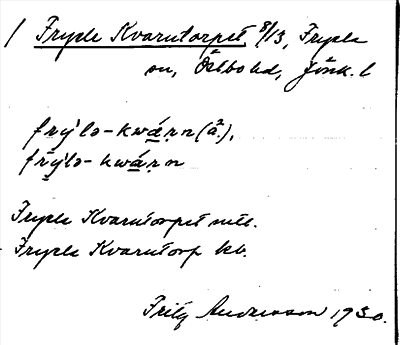 / Fryele Kvarntorpet 8/13, Fryele
sn, Östbo hd, Jönk. l
frýlə-kwárn (å.),
frýlə-kwárn
Fryele Kvarntorpet mtl.
Fryele Kvarntorp kb.
Fritz Andersson 1930.